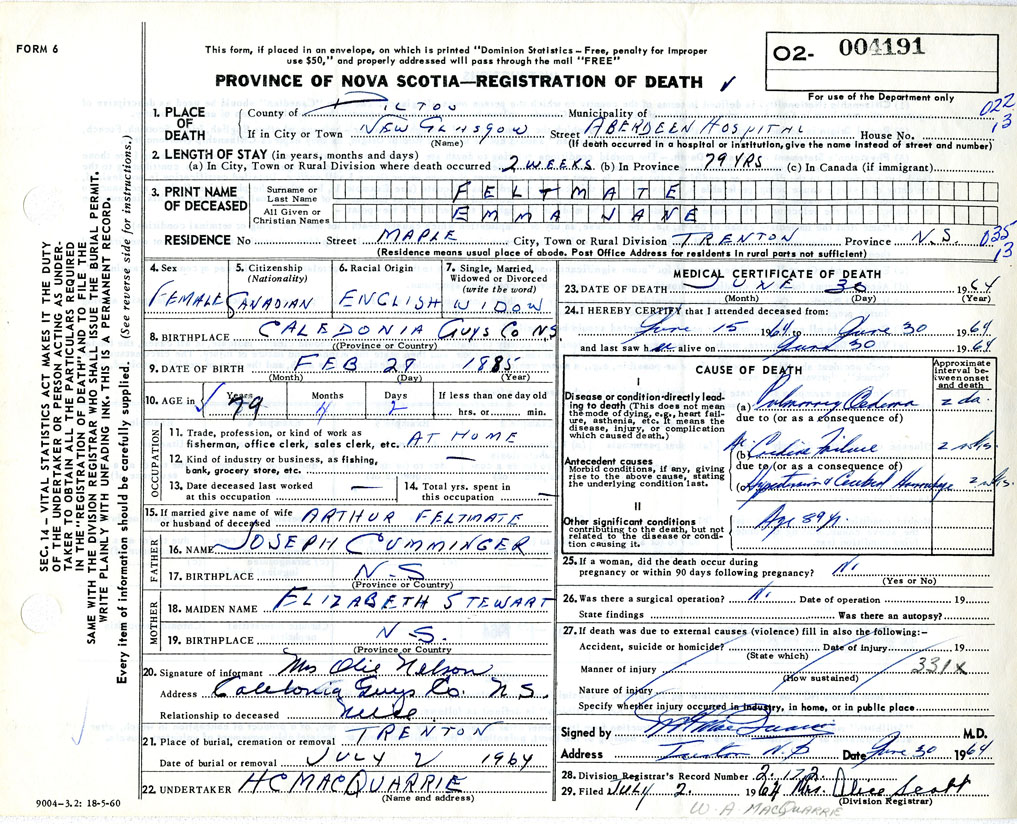 FORM 6
This form, if placed in an envelope, on which is printed "Dominion Statistics – Free, penalty for improper
use $50," and properly addressed will pass through the mail "FREE"
PROVINCE OF NOVA SCOTIA—REGISTRATION OF DEATH ✓
O2- 004191
For use of the Department only
022
13
1. PLACE OF DEATH
County of PICTOU Municipality of
If in City or Town NEW GLASGOW Street ABERDEEN HOSPITAL House No.
(Name) (If death occurred in a hospital or institution, give the name instead of street and number)
2. LENGTH OF STAY (in years, months and days)
(a) In City, Town or Rural Division where death occurred 2 WEEKS (b) In Province 79 YRS (c) In Canada (if immigrant)
3. PRINT NAME OF DECEASED
Surname or Last Name FELTMATE
All Given or Christian Names EMMA JANE
RESIDENCE No Street MAPLE City, Town or Rural Division TRENTON Province N.S.
035
13
(Residence means usual place of abode. Post Office Address for residents in rural parts not sufficient)
4. Sex FEMALE
5. Citizenship (Nationality) CANADIAN
6. Racial Origin ENGLISH
7. Single, Married, Widowed or Divorced (write the word) WIDOW
8. BIRTHPLACE CALEDONIA GUYS CO N.S.
(Province or Country)
9. DATE OF BIRTH FEB 28 1885
(Month) (Day) (Year)
10. AGE in ✓ Years 79 Months 4 Days 2 If less than one day old
hrs. or min.
OCCUPATION
11. Trade, profession or kind of work as
fisherman, office clerk, sales clerk, etc. AT HOME
12. Kind of industry or business, as fishing,
bank, grocery store, etc. —
13. Date deceased last worked
at this occupation —
14. Total yrs. spent in
this occupation —
15. If married give name of wife
or husband of deceased ARTHUR FELTMATE
FATHER
16. NAME JOSEPH CUMMINGER
17. BIRTHPLACE N.S
(Province or Country)
MOTHER
18. MAIDEN NAME ELIZABETH STEWART
19. BIRTHPLACE N.S.
(Province or Country)
20. Signature of informant Mrs Olie Nelson
Address Caledonia Guys Co. N.S.
Relationship to deceased Niece
21. Place of burial, cremation or removal TRENTON
Date of burial or removal JULY 2 1964
22. UNDERTAKER H C MACQUARRIE
(Name and address)
MEDICAL CERTIFICATE OF DEATH
23. DATE OF DEATH JUNE 30 1964
(Month) (Day) (Year)
24. I HEREBY CERTIFY that I attended deceased from:
June 15 1964 to June 30 1964
and last saw her alive on June 30 1964
CAUSE OF DEATH
Approximate interval between onset and death
I
Disease or condition directly leading to death (This does not mean the mode of dying, e.g., heart failure, asthenia, etc. It means the disease, injury, or complication which caused death.)
(a) Pulmonary Oedema 2 da.
due to (or as a consequence of)
Antecedent causes
Morbid conditions, if any, giving rise to the above cause, stating the underlying condition last.
(b) Cardiac Failure 2 wks
due to (or as a consequence of)
(c) Hypertension & Cerebral Hemorrhage 2 wks.
II
Other significant conditions
contributing to the death, but not related to the disease or condition causing it.
Age 89 yr.
25. If a woman, did the death occur during
pregnancy or within 90 days following pregnancy? No
(Yes or No)
26. Was there a surgical operation? No Date of operation 19
State findings Was there an autopsy?
27. If death was due to external causes (violence) fill in also the following:–
Accident, suicide or homicide? Date of injury 19
(State which)
Manner of injury 331X
(How sustained)
Nature of injury
Specify whether injury occurred in industry, in home, or in public place
Signed by M.D.
Address Trenton N.S Date June 30 1964
28. Division Registrar's Record Number 2172
29. Filed July 2. 1964 Mrs. Alice Scott
(Division Registrar)
W-A MACQUARRIE
SEC. 14 – VITAL STATISTICS ACT MAKES IT THE DUTY
OF THE UNDERTAKER OR PERSON ACTING AS UNDER-
TAKER TO OBTAIN ALL THE PARTICULARS REQUIRED
IN THE "REGISTRATION OF DEATH" AND TO FILE THE
SAME WITH THE DIVISION REGISTRAR WHO SHALL ISSUE THE BURIAL PERMIT.
WRITE PLAINLY WITH UNFADING INK. THIS IS A PERMANENT RECORD.
Every item of information should be carefully supplied. (See reverse side for instructions.)
9004-3.2: 18-5-60